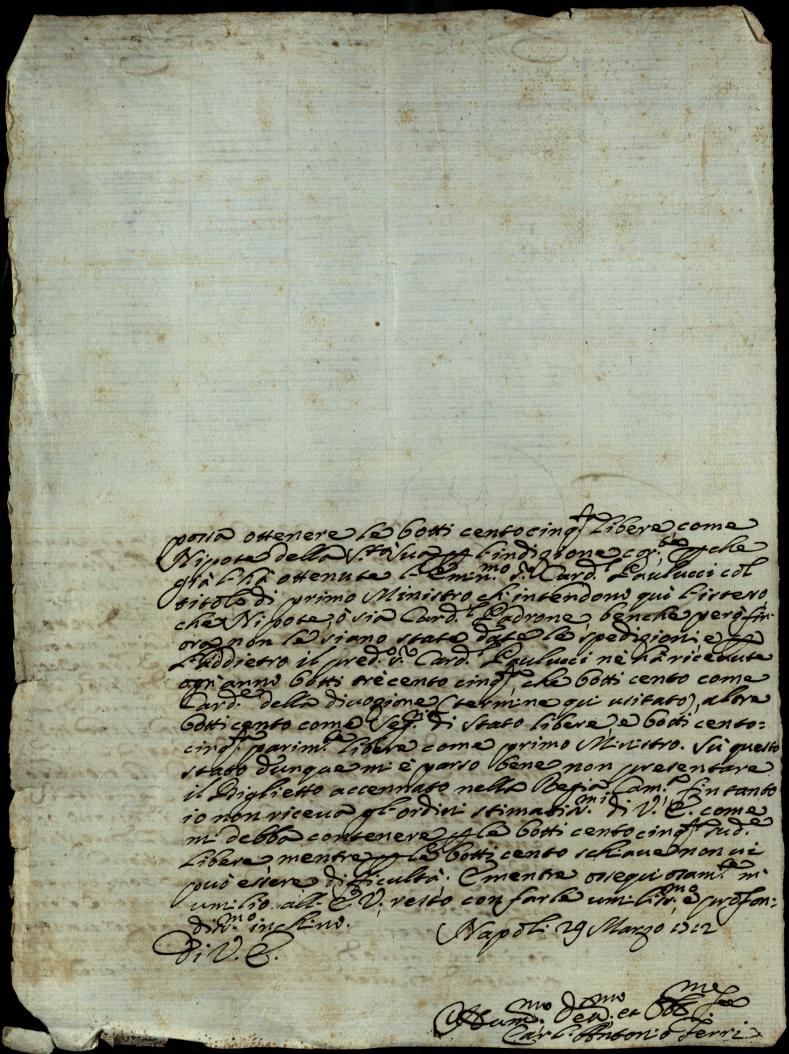 possa ottenere le botti centocinq.ta libere come
Nipote della S.tà Sua p l'indizione cor.te p che
già l'hà ottenute l'Em.mo S.r Card. Paulucci col
titolo di primo Ministro ch'intendono qui l'istesso
che Nipote, ò sia Card. Padrone, benche però fin-
ora non le siano state date le spedizioni e p
l'addietro il pred.o S.r Card. Paulucci nè hà ricevute
ogn'anno botti trècento cinq.ta che botti cento come
Card.e della divozione (termine qui usitato), altre
botti cento come Seg.rio di Stato libere, e botti cento-
cinq.ta parim.te libere come primo Ministro. Sù questo
stato dunque m'è parso bene non presentare
il Biglietto accennato nella Regia Cam.a fin tanto
io non riceva gl'ordini stimatis.mi di V. E. come
mi debba contenere p le botti centocinq.ta sud.e
libere mentre p le botti cento schiave non vi
può essere difficultà. E mentre ossequiosam.te m'
umilio all'E. V. resto con farle umilis.mo e profon-
dis.mo inchino.
Napoli 29 Marzo
Di V. E.
Hum.mo Dev.mo et Obb.mo
Carl'Antonio Ferri